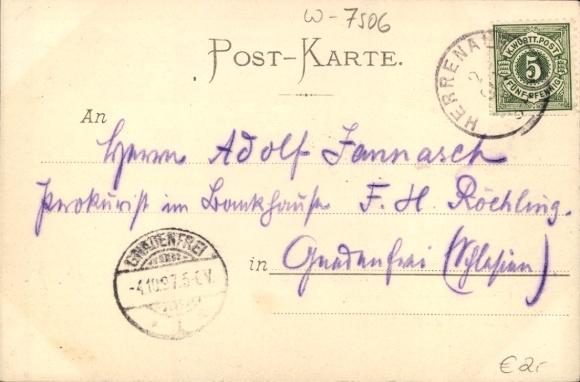 W-7506
POST-KARTE.
HERRENAL
K.WÜRTT.POST
5
FÜNF PFENNIG
An
Herrn Adolf Jannasch
Prokurist im Bankhause F. H. Röchling.
in Gnadenfrei (Schlesien)
GNADENFREI
-4.10.97.5-6.V.
€ 2,-